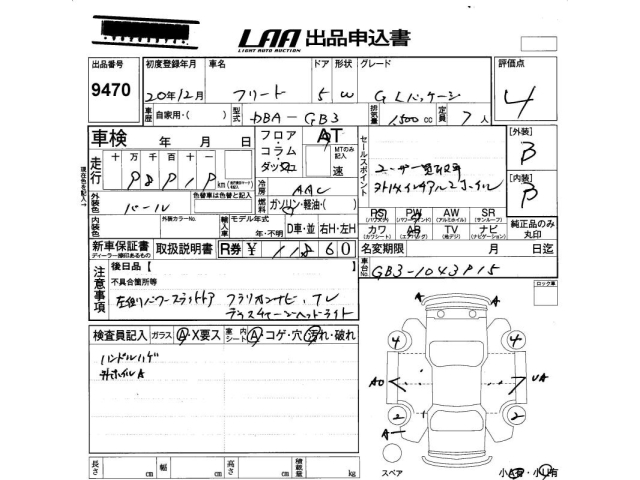 LAA 出品申込書
LIGHT AUTO AUCTION
出品番号 初度登録年月 車名 ドア 形状 グレード 評価点
9470 20年12月 フリード 5 W G Lパッケージ 4
車歴 自家用・( ) 型式 DBA-GB3 排気量 1,500cc 定員 7人
車検 年 月 日 フロア AT
コラム MTのみ記入
ダッシュ 速
セールスポイント
[外装]
B
[内装]
B
走行 十 万 千 百 十 一
km
外装色 パール 色替車は色替と記入
冷房 AAC
燃料 ガソリン・軽油・( )
内装色 外装カラーNo. 輸入車 モデル年式 年・不明 D車・並 右H・左H
PS PW AW SR
(パワステ) (パワーウィンド) (アルミホイル) (サンルーフ)
カワ AB TV ナビ
(カワシート) (エアバッグ) (地デジ) (ナビゲーション)
純正品のみ丸印
新車保証書 取扱説明書 R券 ¥ 11860
ディーラー捺印あるもの
名変期限 月 日迄
車台No. GB3-1043915
注意事項 後日品【 】
不具合箇所等
左側パワースライドドア フリップダウンナビ、TV
ディスチャージヘッドライト
ロック車
検査員記入 ガラス A・X要ス 室内シート A・コゲ・穴・汚れ・破れ
ハンドルハゲ
外ホイルA
A A
4 4
AO UA
2 2
A
長さ cm 幅 cm 高さ cm 積載量 kg
スペア
小A有・小U有